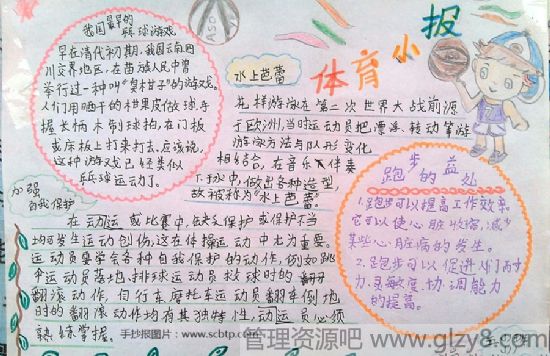 体育小报
我国最早的
乒乓球游戏
早在清代初期,我国云南四
川交界地区,在苗族人民中曾
举行过一种叫“臭柑子”的游戏。
人们用晒干的柑果废做球,手
握长柄木制球拍,在门板
或床板上打来打去,应该说,
这种游戏已经类似
乒乓球运动了。
水上芭蕾
花样游泳在第二次世界大战前源
于欧洲,当时运动员把漂浮、转动等游
游泳方法与队形变化
相结合,在音乐伴奏
下,做出各种造型,
故被称为“水上芭蕾”
加强
自我保护
在运动或比赛中,缺乏保护或保护不当
均可发生运动创伤,这在体操运动中尤为重要。
运动员要学会各种自我保护的动作,例如跳
伞运动员落地,排球运动员救球时的
翻滚动作,自行车摩托车运动员翻车倒地
时的翻滚动作均有其独特性,动员必须
熟练掌握。
跑步的益处
1.跑步可以提高工作效率。
它可以使心脏收缩,减少
某些心脏病的发生。
2.跑步可以促进人们耐
力、灵敏度、协调能力
的提高。
手抄报图片:www.scbtp.com
管理资源吧
www.glzy8.com